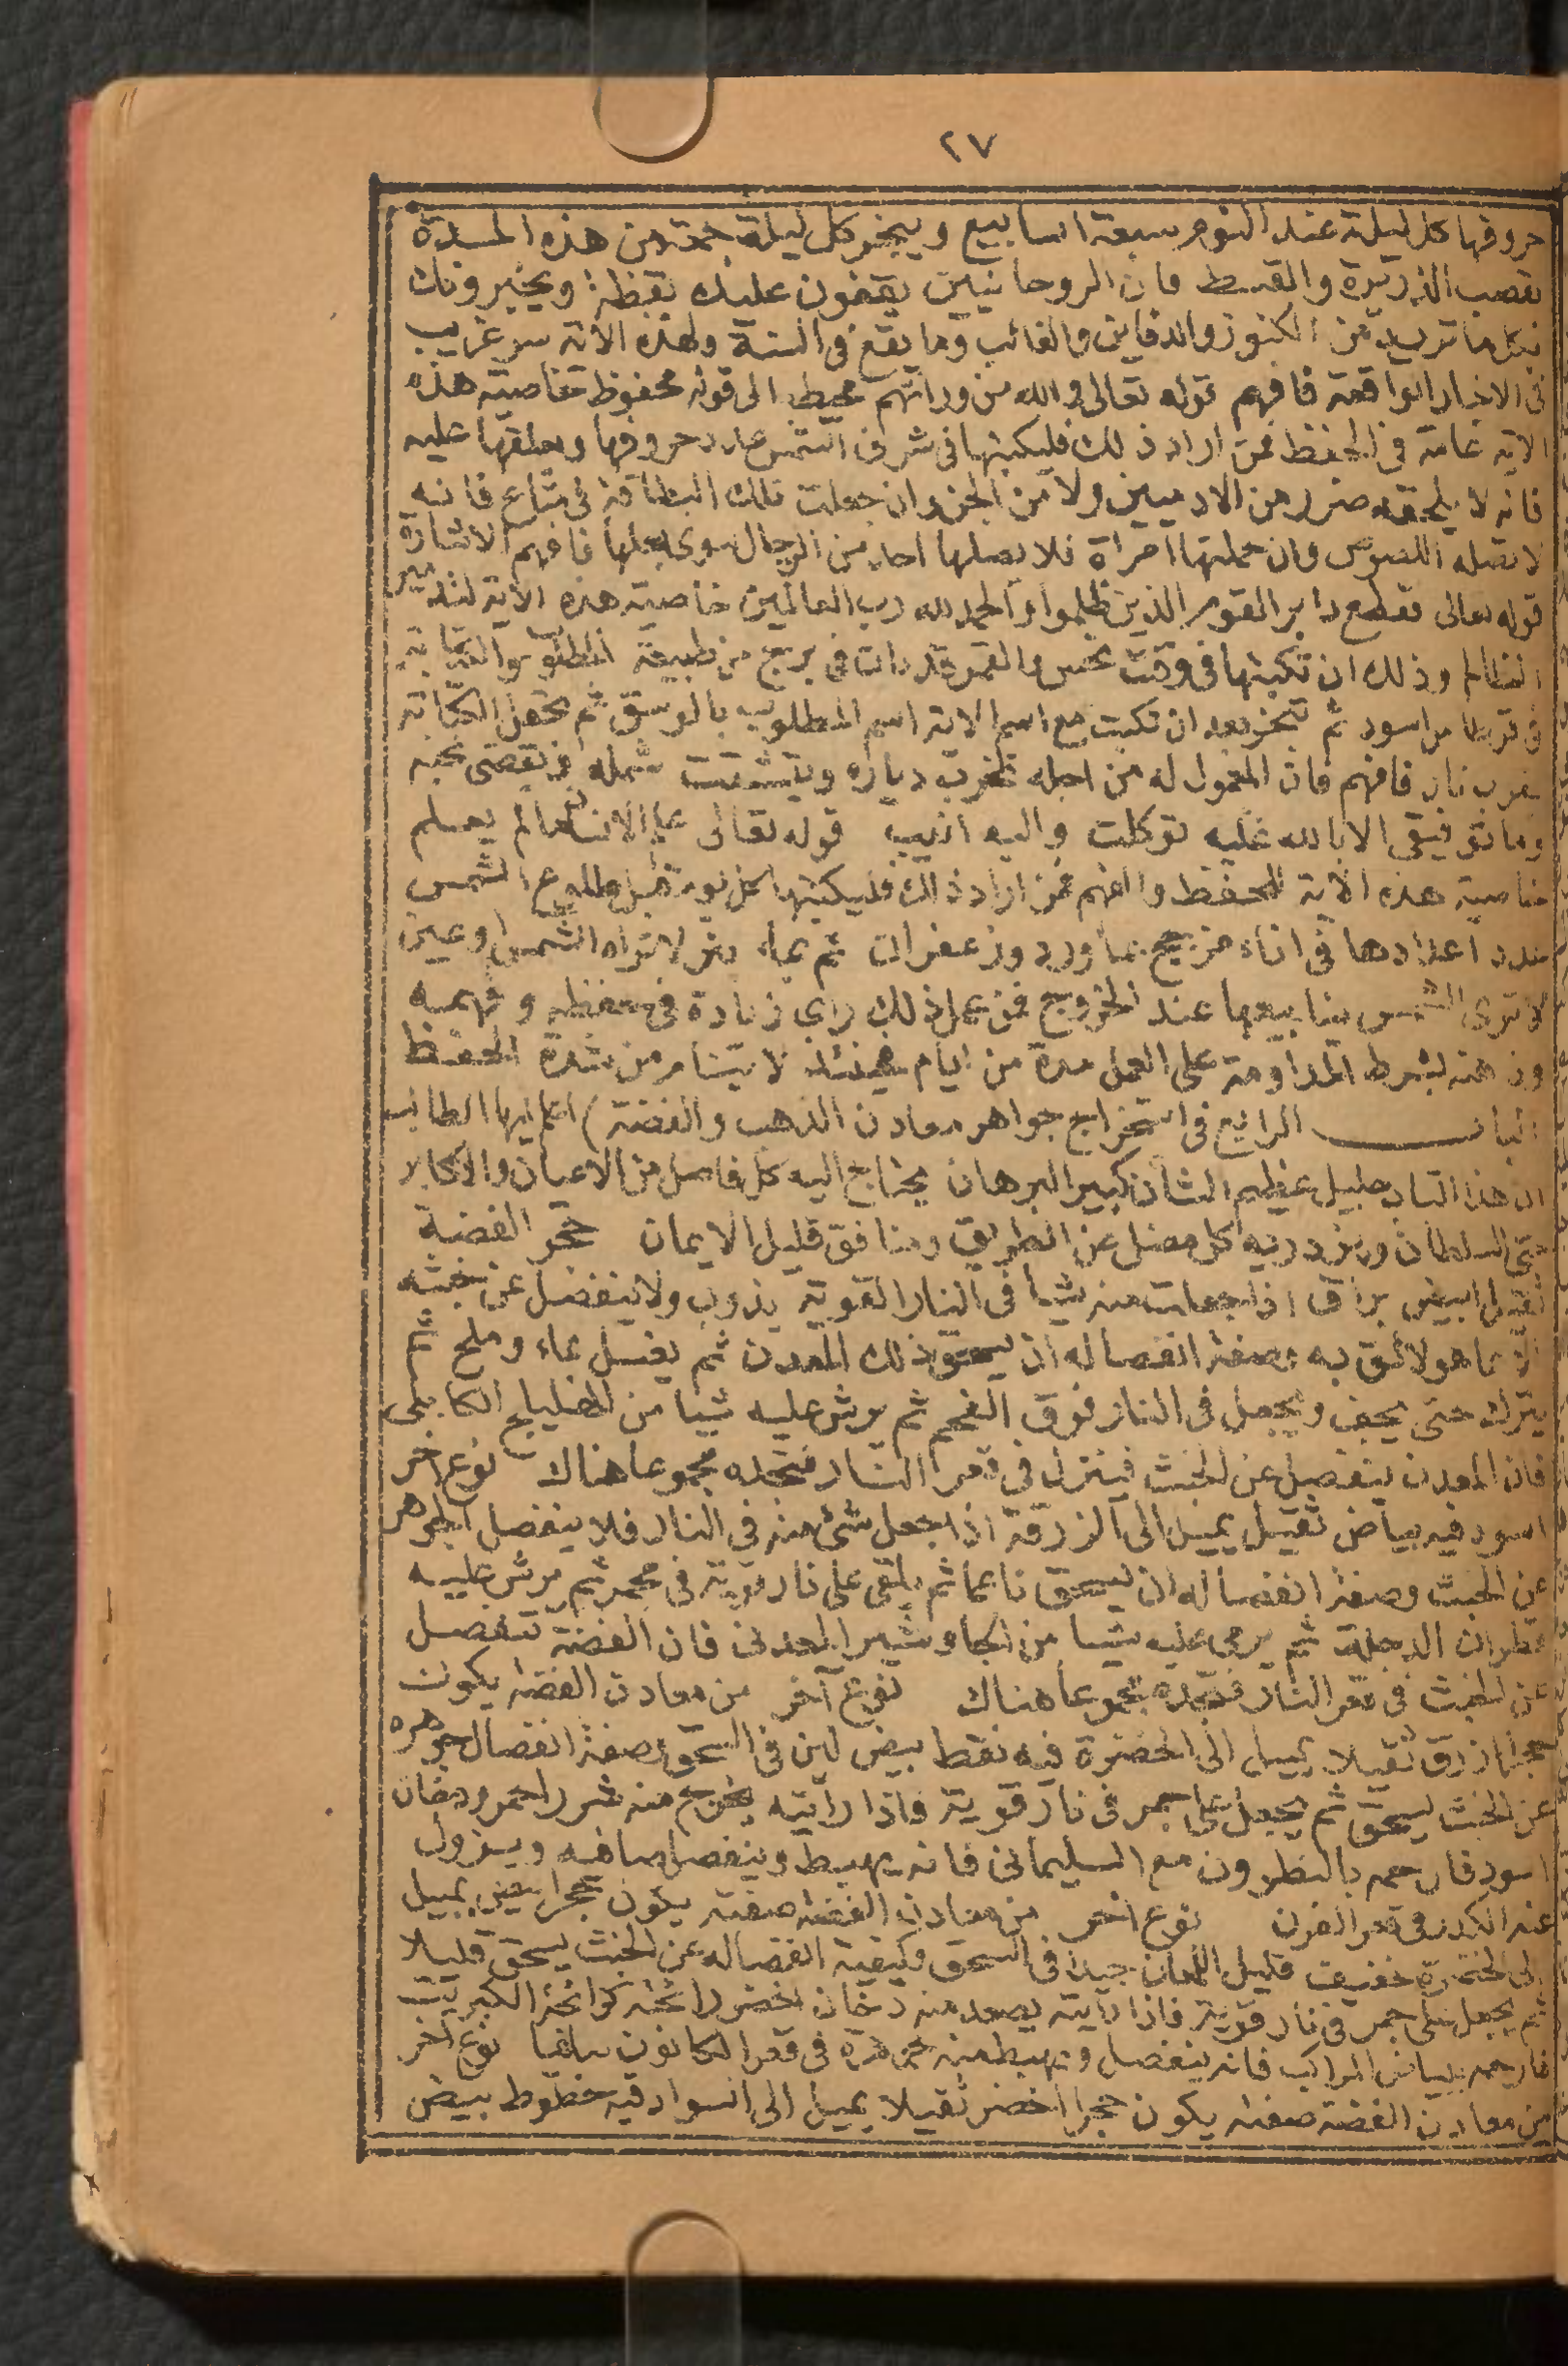 ٢٧
حروفها كل ليلة عند النوم سبعة اسابيع ويبخر كل ليلة جمعة من هذه المدة
بقصب الذريرة والقسط فان الروحانيين يقفون عليك يقظة ويخبرونك
بكل ما تريد من الكنوز والدفاين والغائب وما يقع فى السنة ولهذه الاية سر غريب
فى الاخبار الواقعة فافهم قوله تعالى والله من ورائهم محيط الى قوله محفوظ خاصية هذه
الاية عامة فى الحفظ فمن اراد ذلك فليكتبها فى شرف الشمس عدد حروفها ويعلقها عليه
فانه لا يلحقه ضرر من الادميين ولا من الجن وان جعلت تلك البطاقة فى متاع فانه
لا تصله اللصوص وان حملتها امراة فلا يصلها احد من الرجال سوى بعلها فافهم الاشارة
قوله تعالى فقطع دابر القوم الذين ظلموا والحمد لله رب العالمين خاصية هذه الاية لتدمير
الظالم وذلك ان تكتبها فى وقت نحس والقمر فى برج من طبيعة المطلوب والكتابة
فى قرطاس اسود ثم تبخر بعد ان تكتب مع اسم الاية اسم المطلوب ثم تجعل الكتابة
بقرب نار فافهم فان المعمول له من اجله تخرب دياره ويتشتت شمله ويقضى نحبه
وما توفيقى الا بالله عليه توكلت واليه انيب قوله تعالى علم الانسان ما لم يعلم
خاصية هذه الاية للحفظ والفهم فمن اراد ذلك فليكتبها كل يوم قبل طلوع الشمس
عدد اعدادها فى اناء مزجج بماورد وزعفران ثم بماء بئر لا تراه الشمس او عين
لا ترى الشمس ينابيعها عند الخروج فمن عمل ذلك راى زيادة فى حفظه وفهمه
وذهنه بشرط المداومة على العمل مدة من ايام لا ينام من شدة الحفظ
الباب الرابع فى استخراج جواهر معادن الذهب والفضة) اعلم ايها الطالب
ان هذا الباب جليل عظيم الشان كبير البرهان يحتاج اليه كل فاضل من الاعيان والاكابر
حتى السلطان ويزدريه كل مضل عن الطريق ومنافق قليل الايمان حجر الفضة
ثقيل ابيض براق اذا جعلت منه شيا فى النار القوية يذوب ولا ينفصل عن خبثه
الا بما هو لائق به وصفة انفصاله ان يسحق ذلك المعدن ثم يغسل بماء وملح ثم
يترك حتى يجف ويجعل فى النار فوق الفحم ثم يرش عليه شيا من الهليلج الكابلى
فان المعدن ينفصل عن الخبث فينزل فى قعر النار فتجده مجموعا هناك نوع اخر
اسود فيه بياض ثقيل يميل الى الزرقة اذا جعل شئ منه فى النار فلا ينفصل الجوهر
عن الخبث وصفة انفصاله ان يسحق ناعما ثم يلقى على نار قوية فى مجمر ثم يرش عليه
قطران الدجلة ثم يرمى عليه شيا من المعدنى فان الفضة تنفصل
عن الخبث فى قعر النار فتجده مجموعا هناك نوع آخر من معادن الفضة يكون
حجرا ازرق ثقيلا يميل الى الخضرة فيه نقط بيض لين فى السحق وصفة انفصال جوهره
عن الخبث يسحق ثم يجعل على جمر فى نار قوية فاذا رأيته يخرج منه شرر احمر ودخان
اسود فارحمه بالنطرون مع السليمانى فانه يهبط وينفصل صافيه ويزول
عنه الكدر فى قعر الفرن نوع اخر من معادن الفضة صفته يكون حجرا ابيض يميل
الى الخضرة خفيف قليل اللمعان جيدا فى السحق وكيفية انفصاله عن الخبث يسحق قليلا
ثم يجعل على جمر فى نار قوية فاذا رأيته يصعد منه دخان اخضر رائحته كرائحة الكبريت
فارحمه ببياض فانه ينفصل ويهبط منه جوهره فى قعر الكانون نوع اخر
من معادن الفضة صفته يكون حجرا اخضر ثقيلا يميل الى السواد فيه خطوط بيض